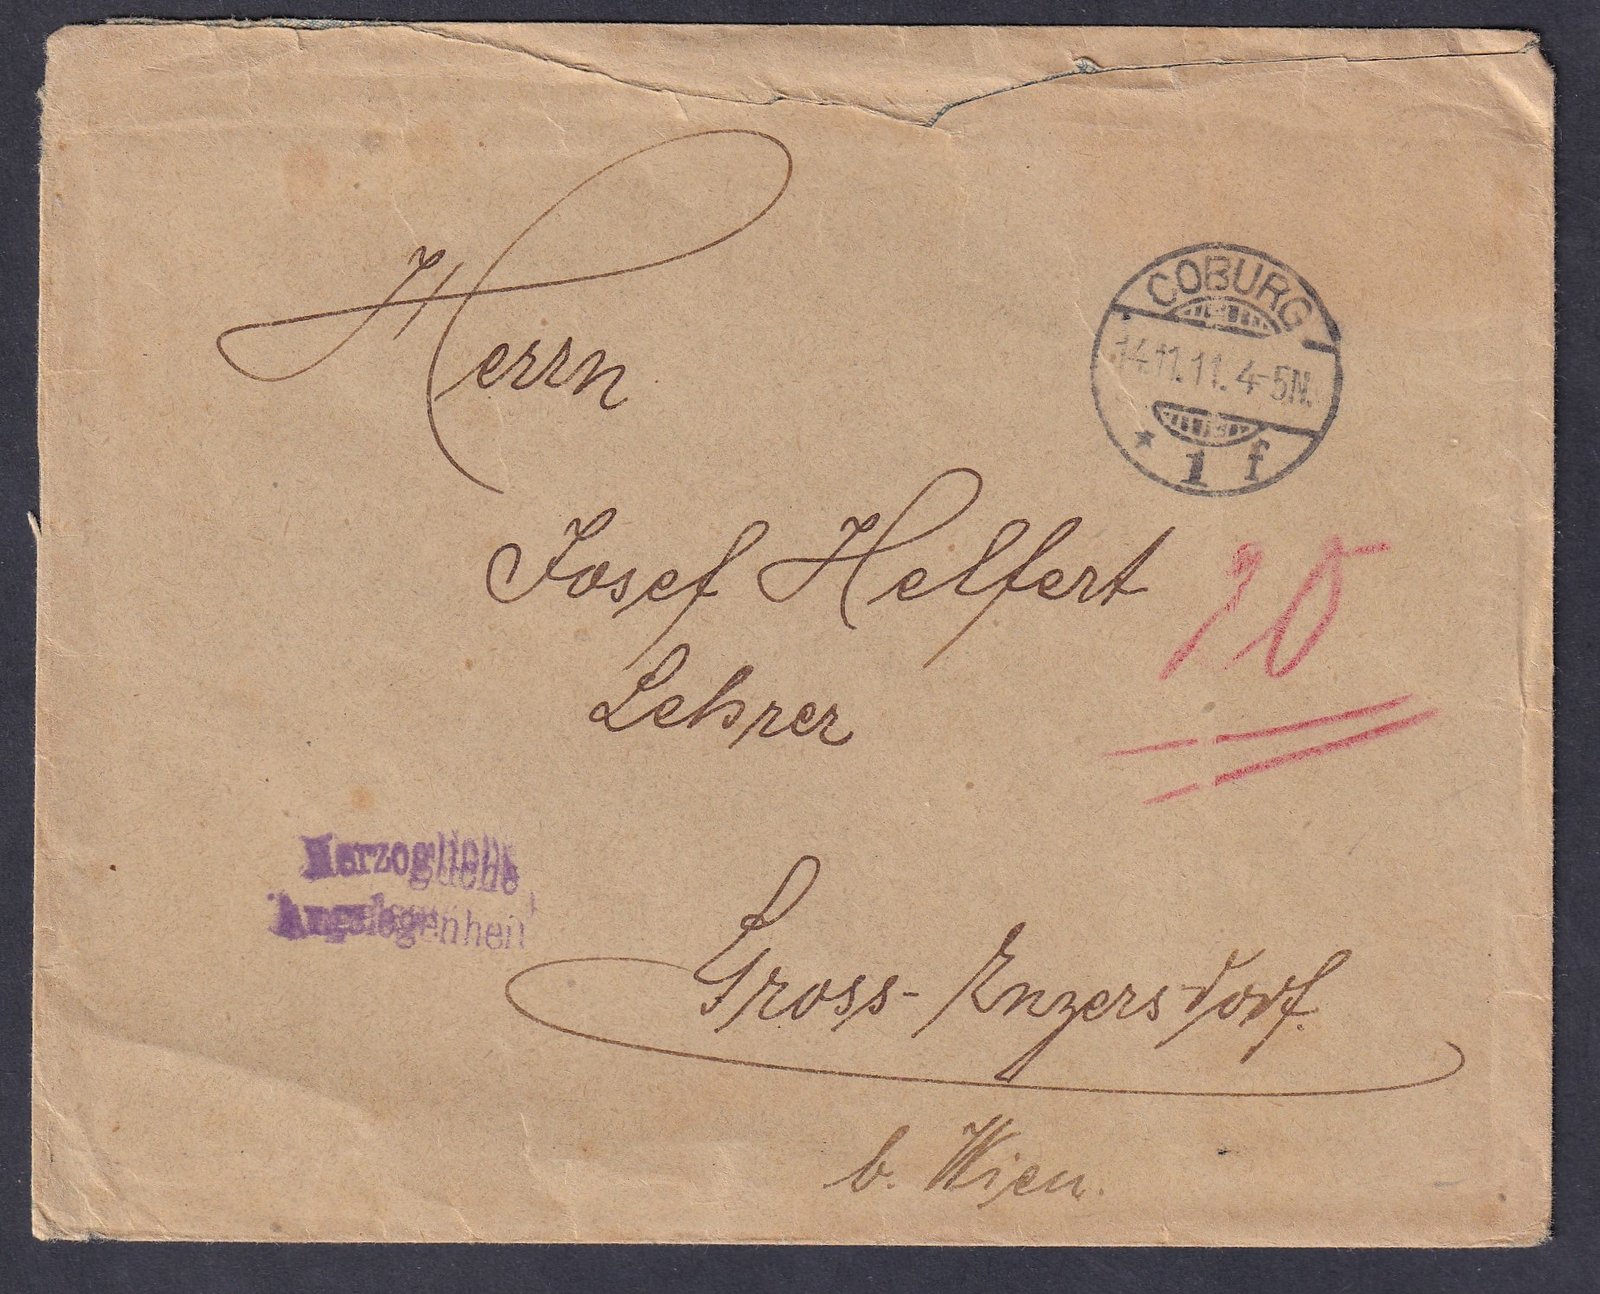 COBURG
14.11.11. 4-5N.
* 1 f
Herrn
Josef Helfert
20
Lehrer
Herzogliche
Angelegenheit
Gross-Enzersdorf.
b. Wien.